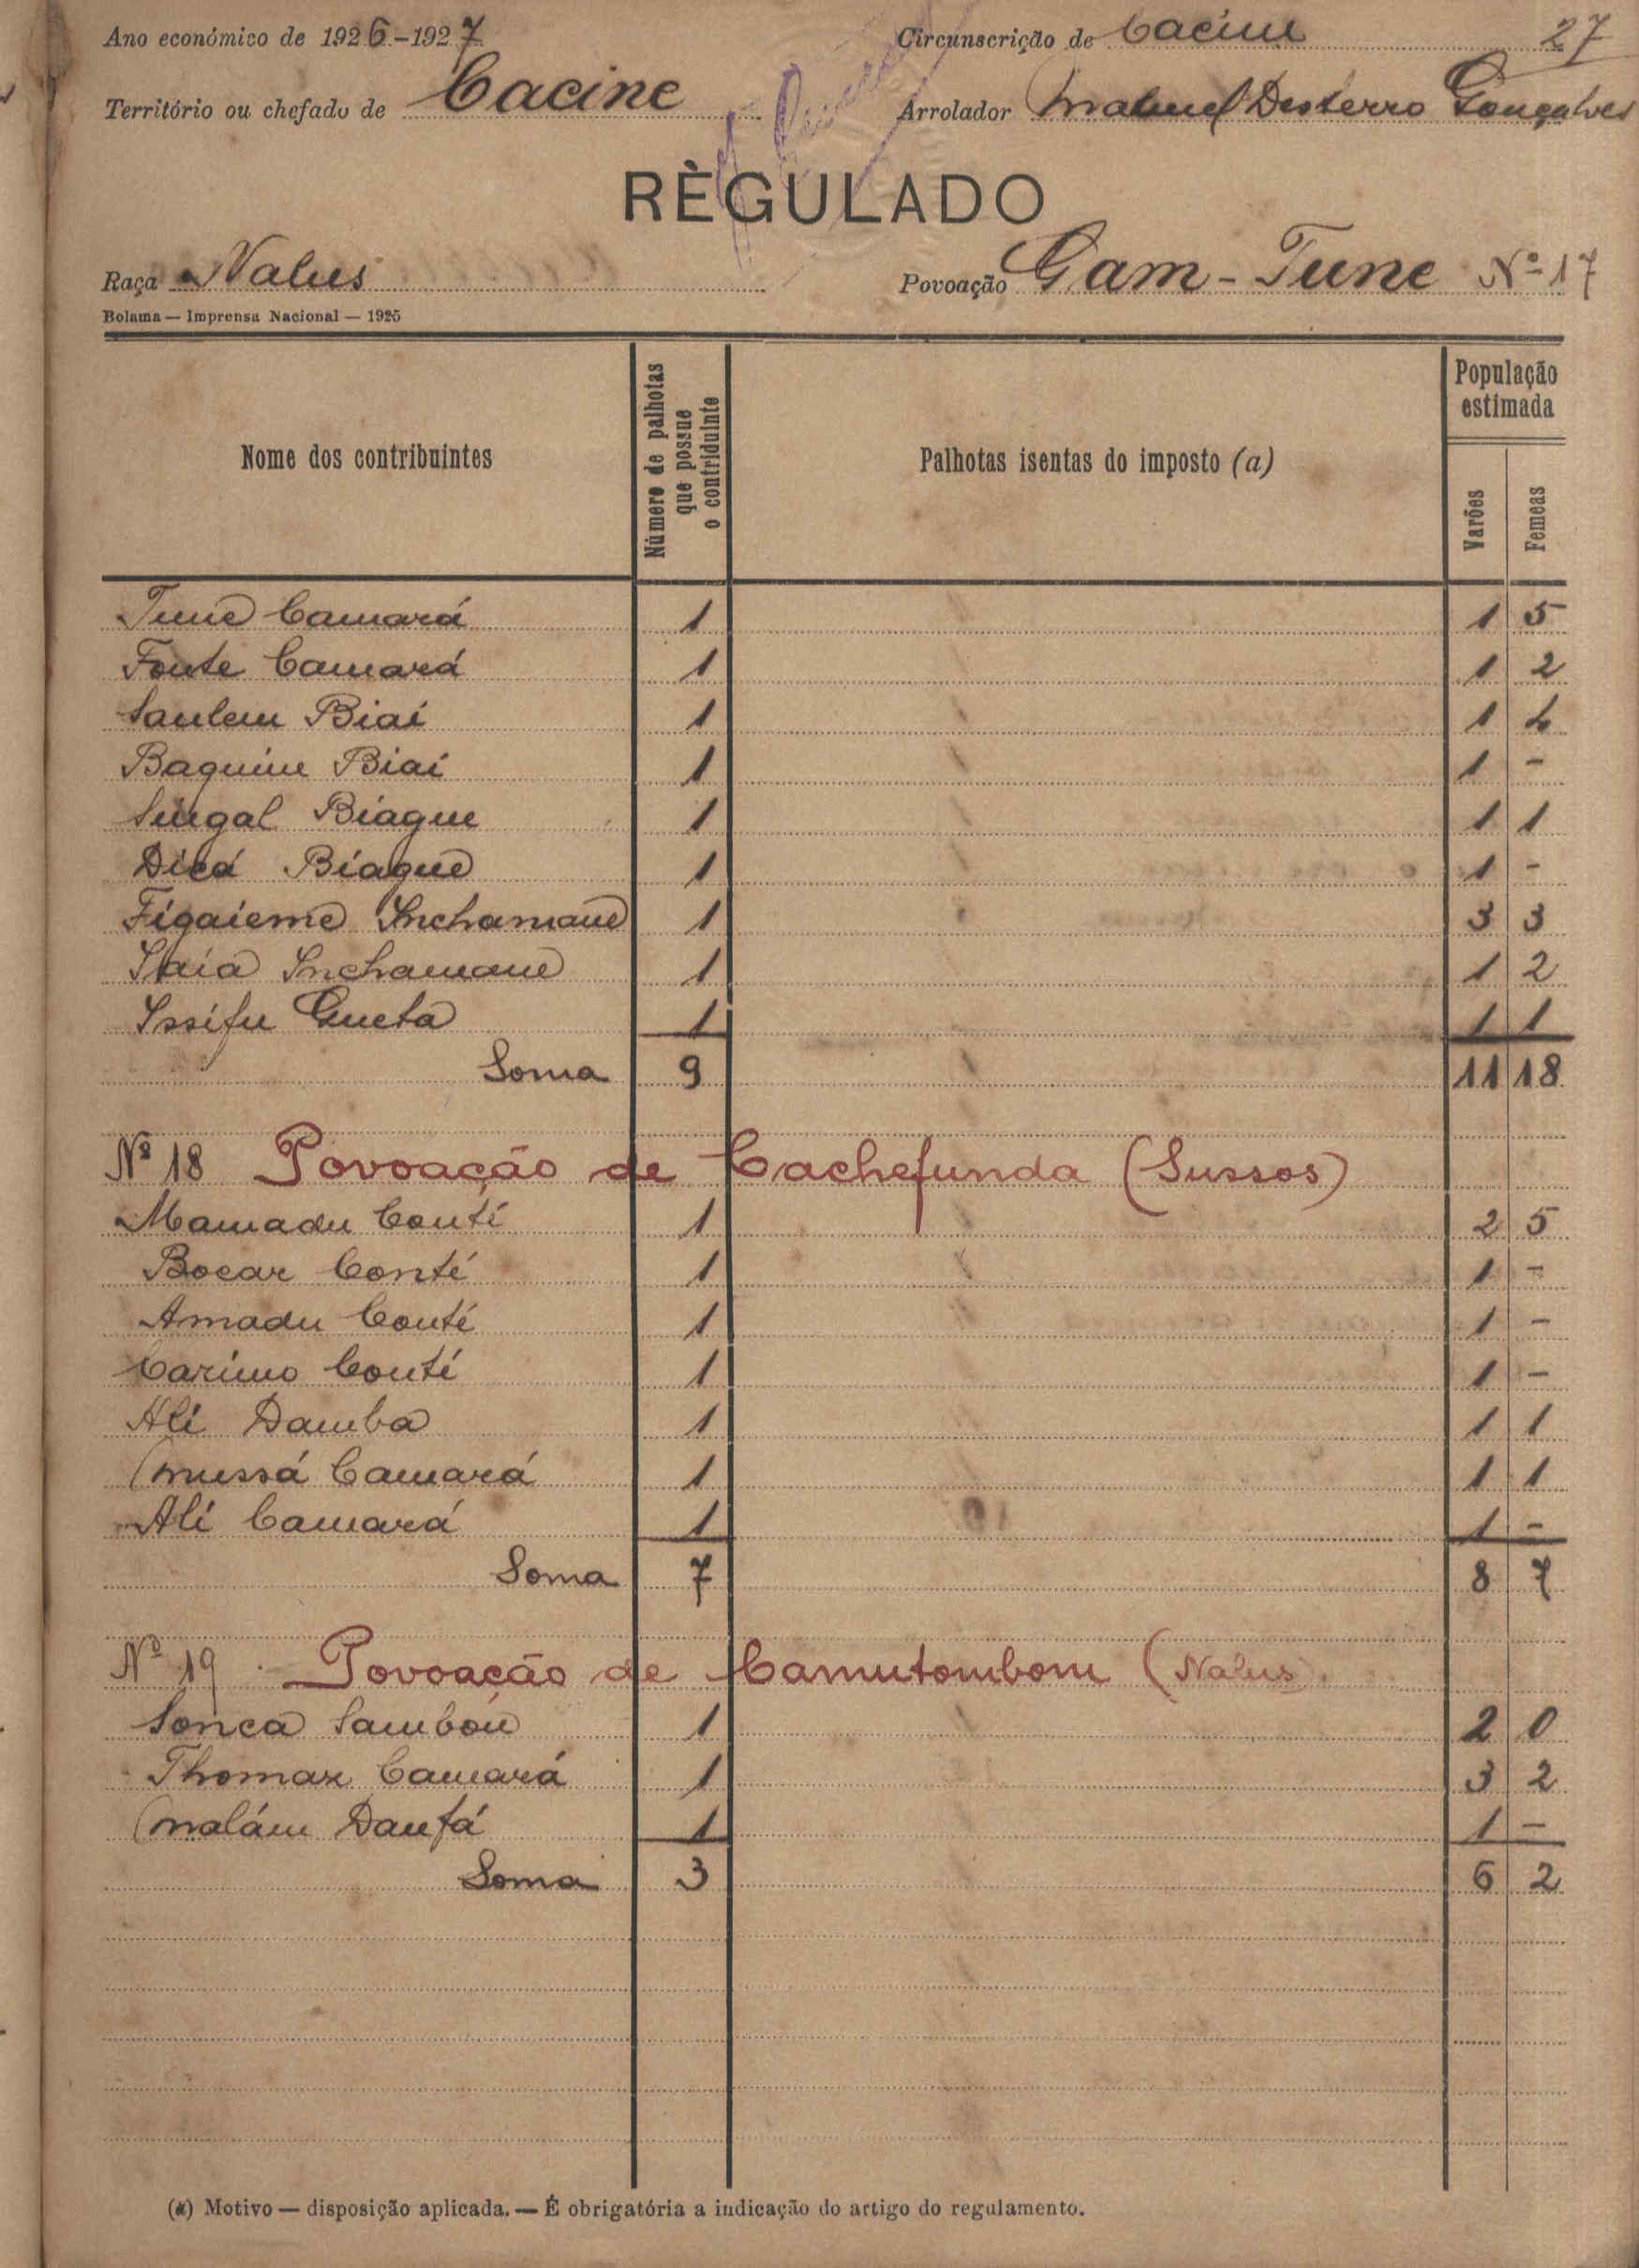 Ano económico de 1926-1927 Circunscrição de Cacine 27
Território ou chefado de Cacine Arrolador Manuel Desterro Gonçalves
RÈGULADO
Raça Nalus Povoação Gam-Tune Nº 17
Bolama — Imprensa Nacional — 1925
Nome dos contribuintes Número de palhotas que possue o contriduinte Palhotas isentas do imposto (a) População estimada Varões Femeas
Tune Camará 1 1 5
Fonte Camará 1 1 2
Sanlem Biai 1 1 4
Baquine Biai 1 1 -
Sungal Biague 1 1 1
Dicá Biague 1 1 -
Figaieme Inchamane 1 3 3
Iaia Inchamane 1 1 2
Issifu Gueta 1 1 1
Soma 9 11 18
Nº 18 Povoação de Cachefunda (Sussos)
Mamadu Conté 1 2 5
Bocar Conté 1 1 -
Amadu Conté 1 1 -
Carimo Conté 1 1 -
Ali Damba 1 1 1
Mussá Camará 1 1 1
Ali Camará 1 1 -
Soma 7 8 7
Nº 19 Povoação de Camutombom (Nalus)
Sonca Sambou 1 2 0
Thomaz Camará 1 3 2
Malám Danfá 1 1 -
Soma 3 6 2
(a) Motivo — disposição aplicada. — É obrigatória a indicação do artigo do regulamento.